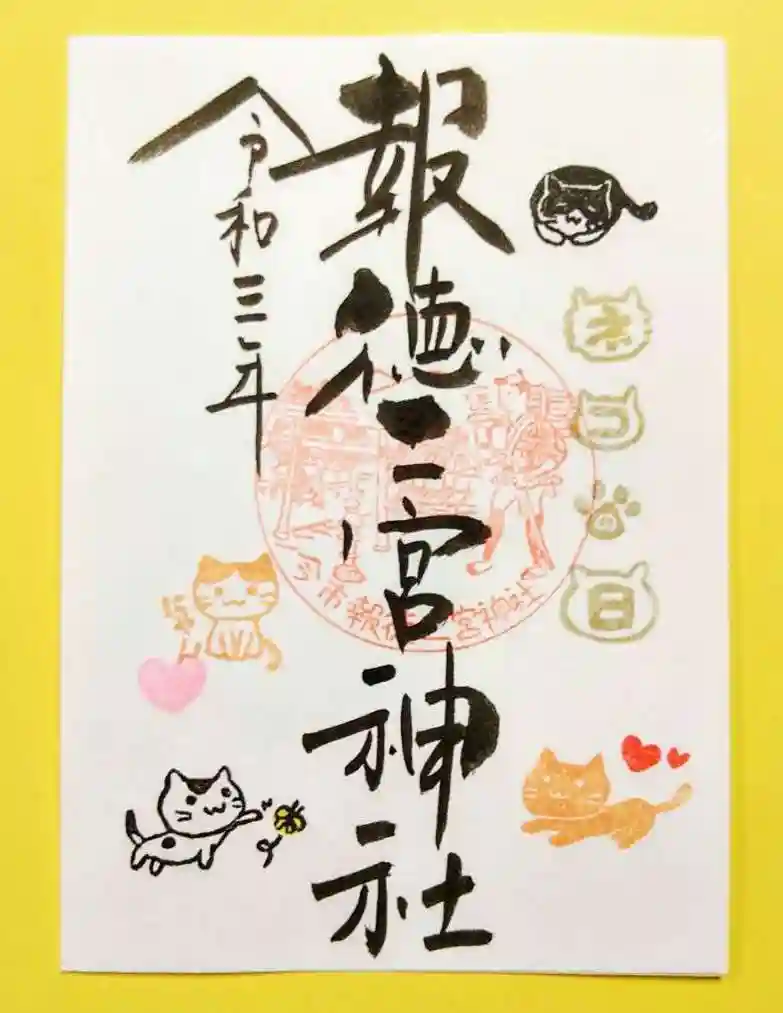 ネコの日
報徳二宮神社
令和三年
市報徳二宮神社